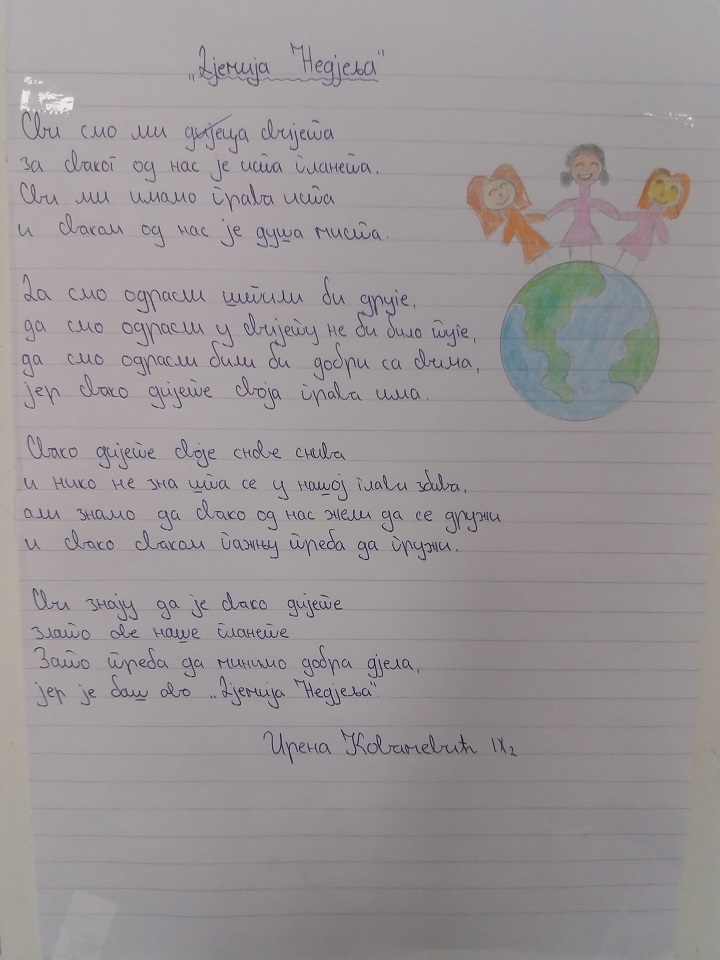 „Дјечија Недјеља"
Сви смо ми дијеца свијета
за сваког од нас је иста планета.
Сви ми имамо права иста
и сваком од нас је душа чиста.
Да смо одрасли штитили би друге,
да смо одрасли у свијету не би било туге,
да смо одрасли били би добри са свима,
јер свако дијете своја права има.
Свако дијете своје снове снива
и нико не зна шта се у нашој глави збива,
али знамо да свако од нас жели да се дружи
и свако сваком пажњу треба да пружи.
Сви знају да је свако дијете
злато ове наше планете
Зато треба да чинимо добра дјела,
јер је баш ово „Дјечија Недјеља"
Ирена Ковачевић IX2